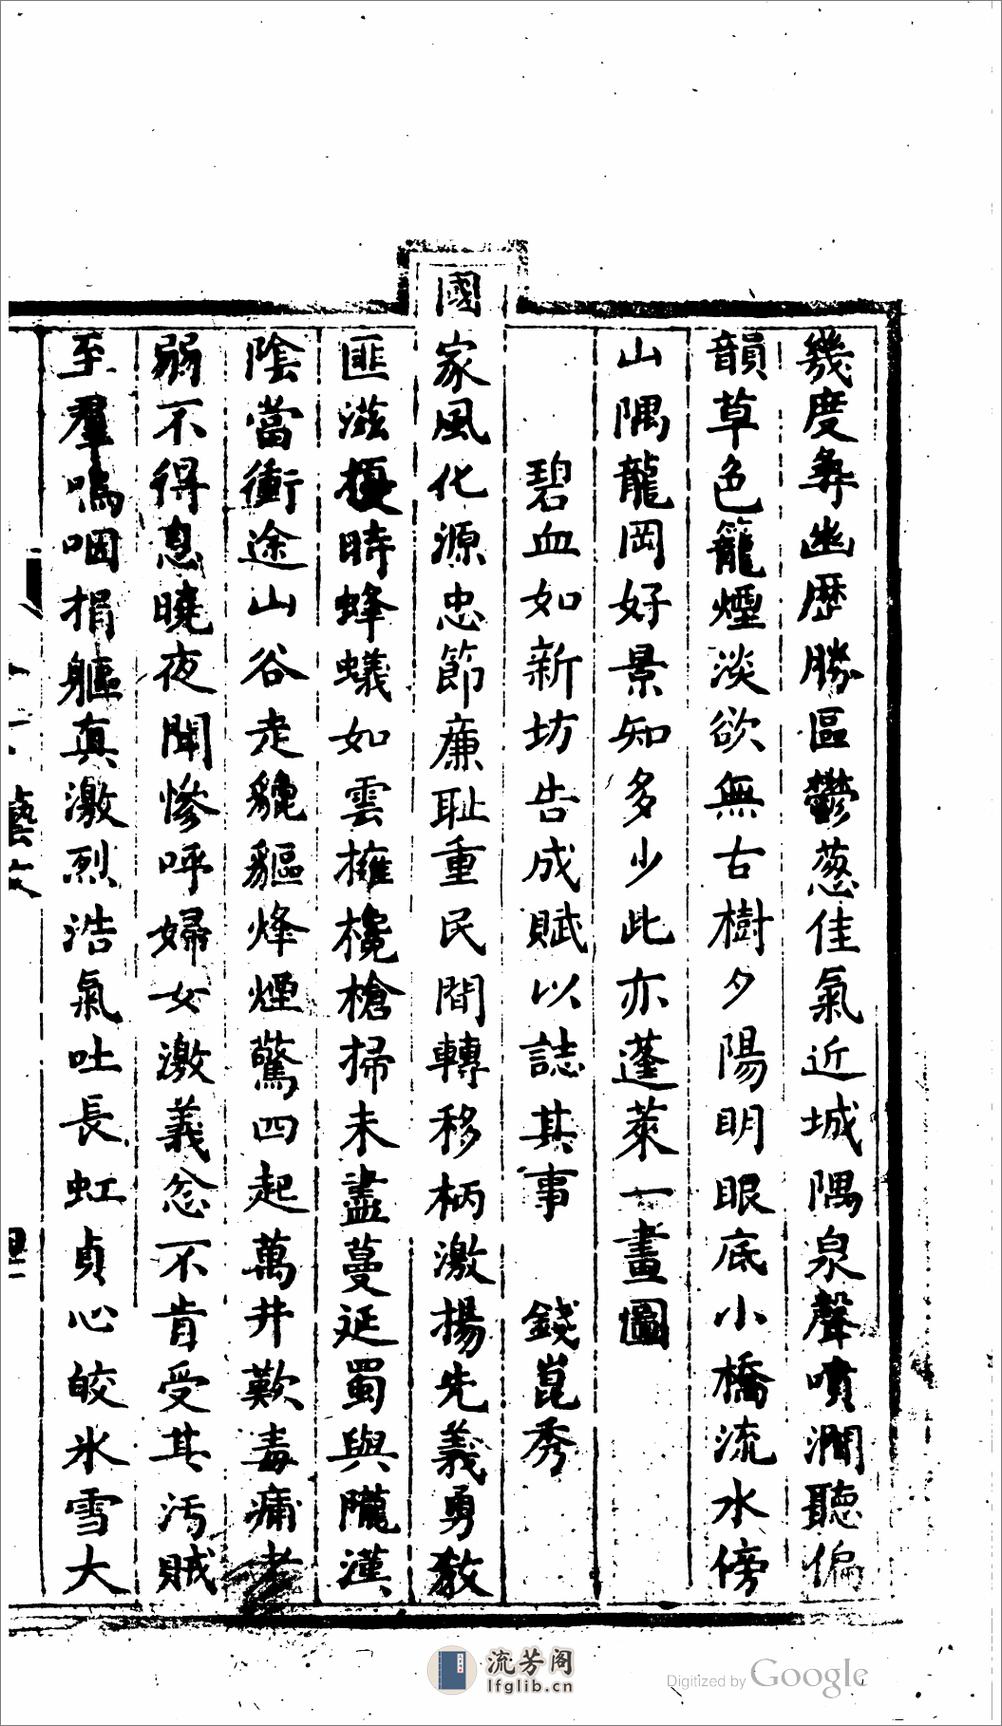 幾度尋幽歴勝區鬱葱佳氣近城隅泉聲噴澗聽偏
韻草色籠煙淡欲無古樹夕陽明眼底小橋流水傍
山隅龍岡好景知多少此亦蓬萊一畫圖
碧血如新坊告成賦以誌其事　錢崑秀
國家風化源忠節廉耻重民間轉移柄激揚先義勇教
匪滋擾時蜂蟻如雲擁欃槍掃未盡蔓延蜀與隴漢
陰當衝途山谷走貔貙烽煙驚四起萬井歎毒痡老
弱不得息曉夜聞慘呼婦女激義忿不肯受其汚賊
至羣嗚咽捐軀真激烈浩氣吐長虹貞心皎氷雪大
藝文
流芳阁
lfglib.cn
Digitized by Google